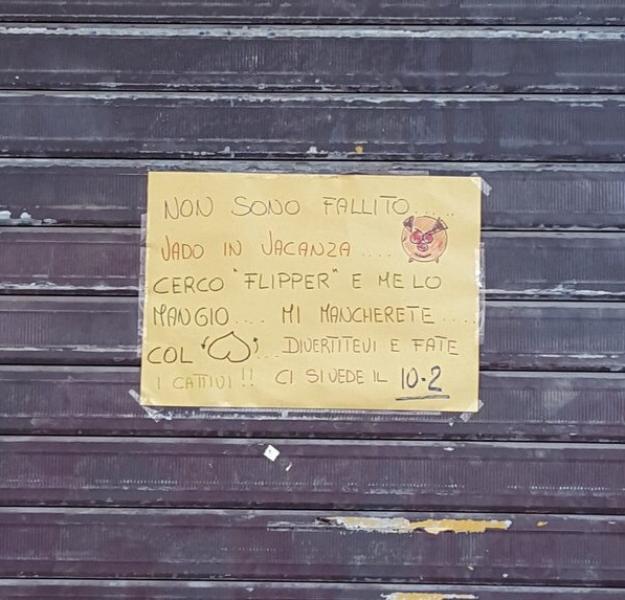 NON SONO FALLITO.....
VADO IN VACANZA ....
CERCO "FLIPPER" E ME LO
MANGIO.... MI MANCHERETE ....
COL ... DIVERTITEVI E FATE
I CATTIVI !! CI SI VEDE IL 10-2